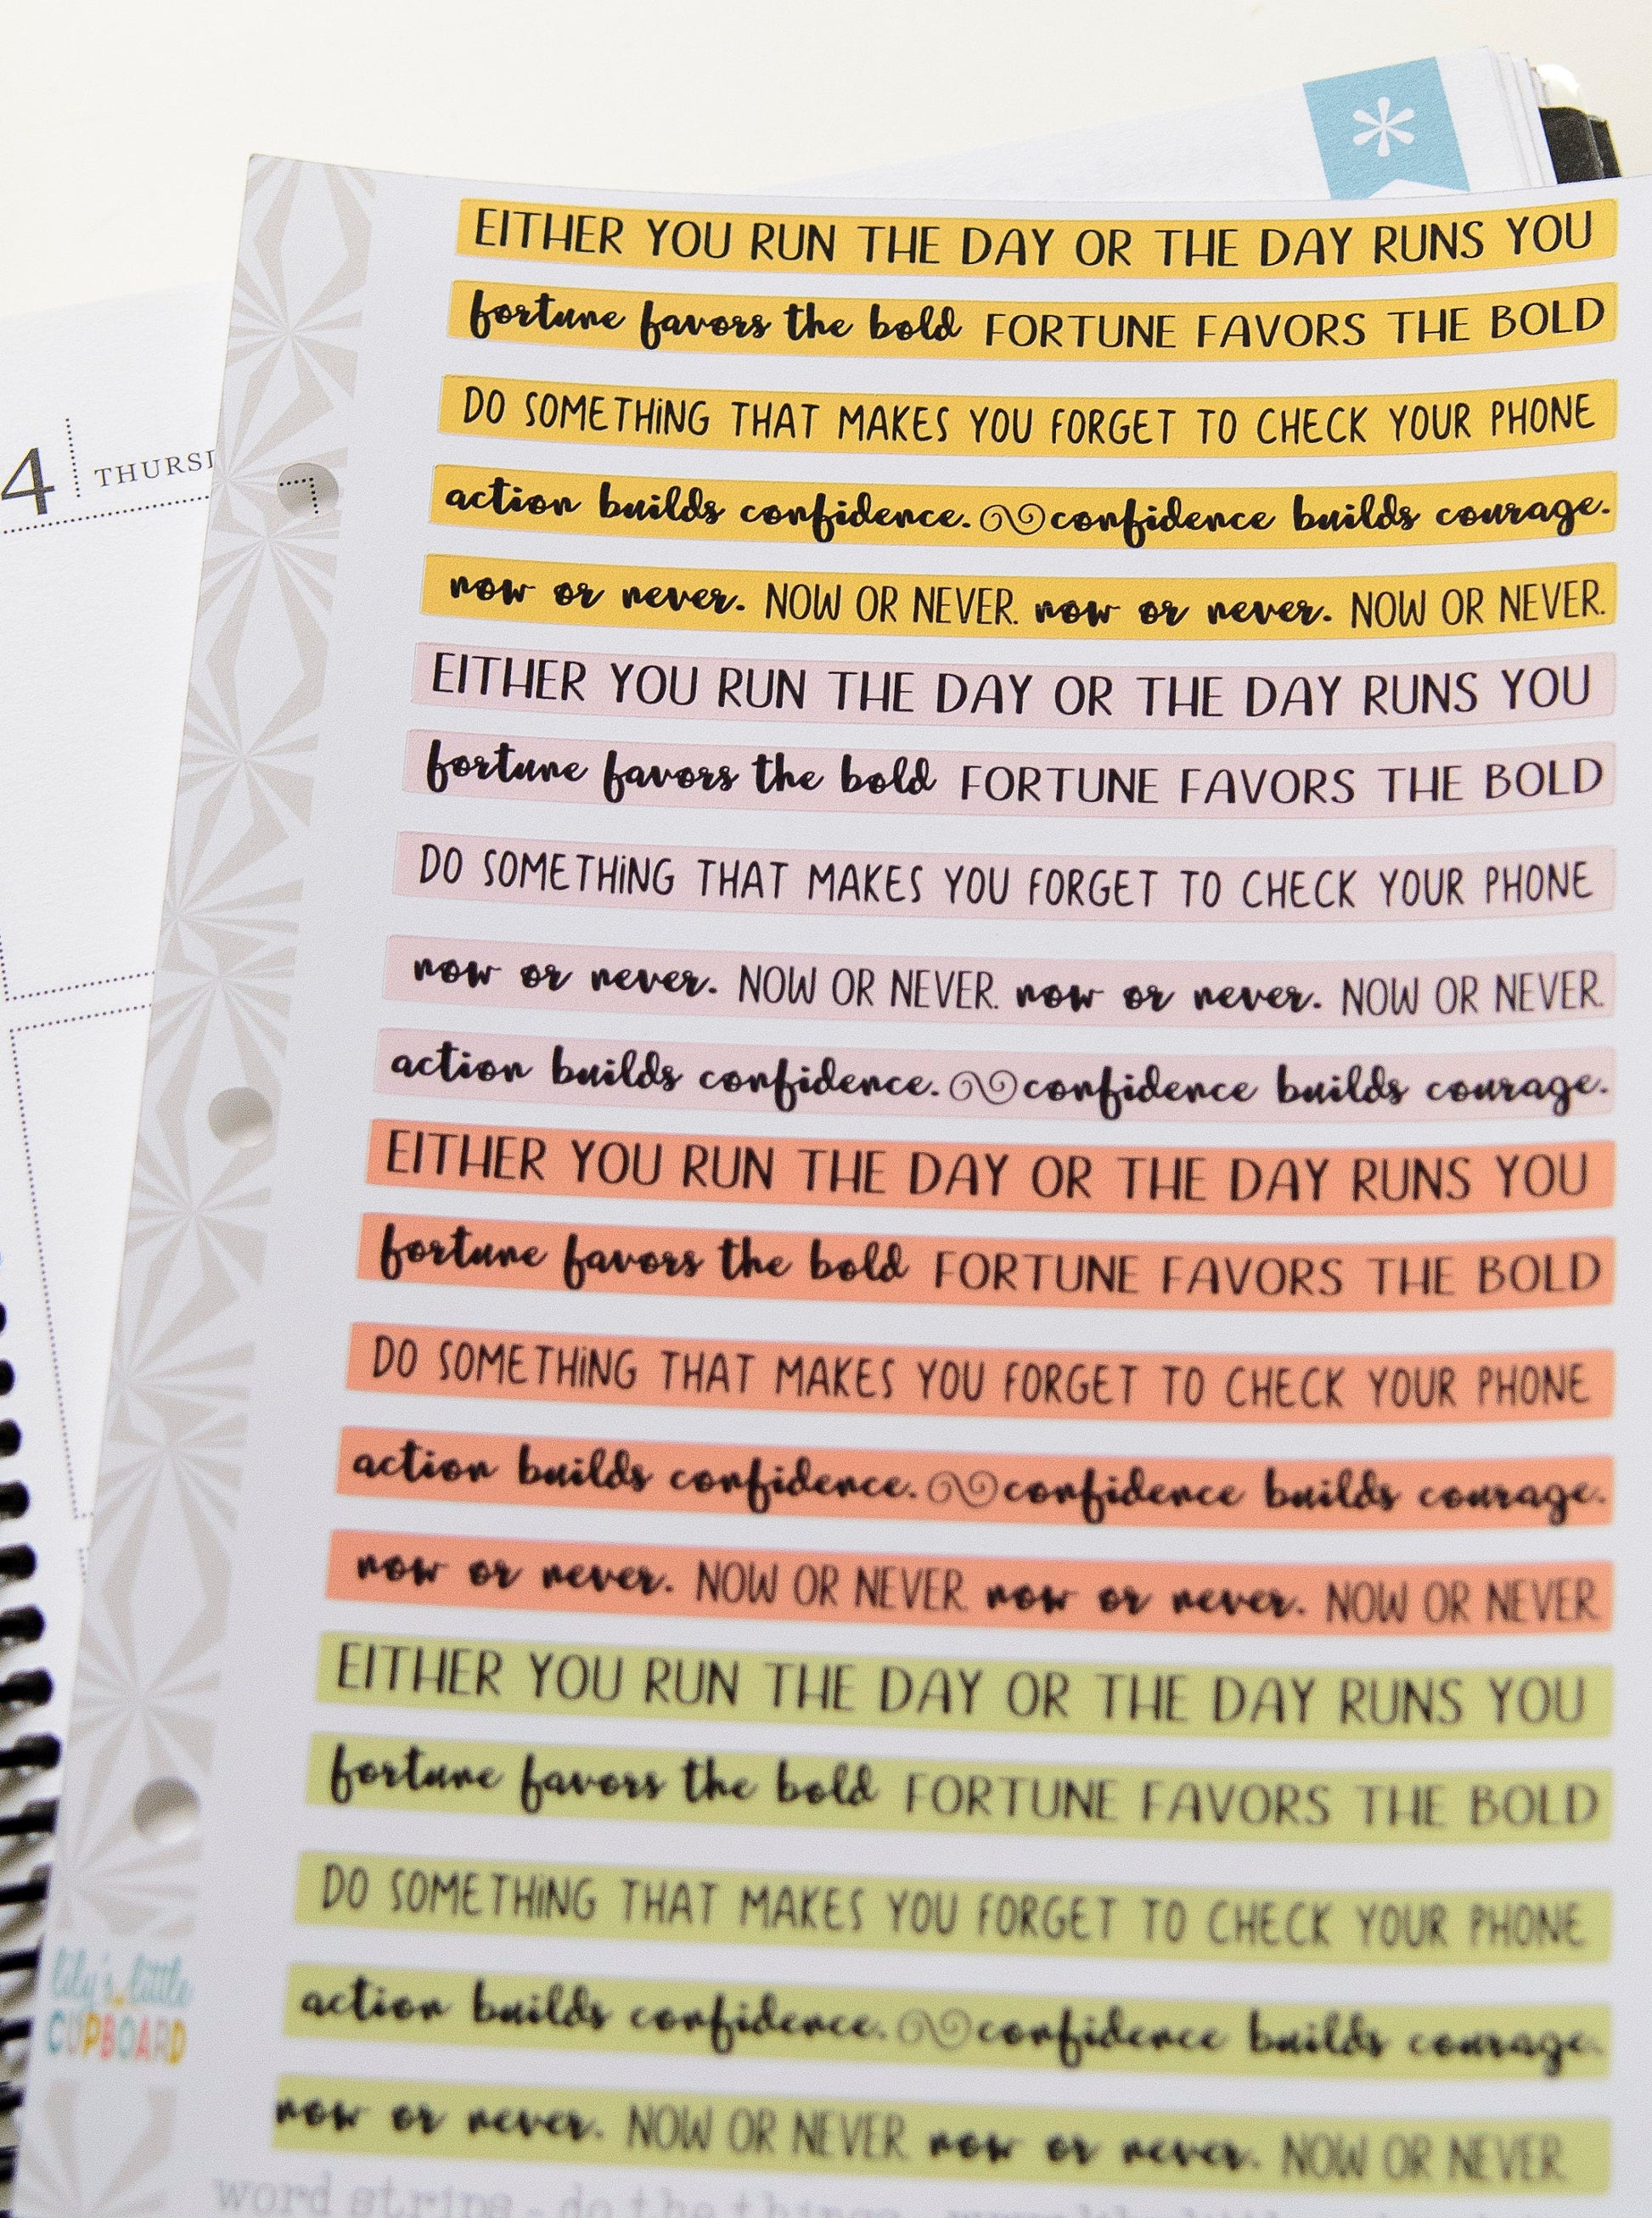 *
EITHER YOU RUN THE DAY OR THE DAY RUNS YOU
fortune favors the bold FORTUNE FAVORS THE BOLD
DO SOMETHING THAT MAKES YOU FORGET TO CHECK YOUR PHONE
action builds confidence. confidence builds courage.
now or never. NOW OR NEVER. now or never. NOW OR NEVER.
EITHER YOU RUN THE DAY OR THE DAY RUNS YOU
fortune favors the bold FORTUNE FAVORS THE BOLD
DO SOMETHING THAT MAKES YOU FORGET TO CHECK YOUR PHONE
now or never. NOW OR NEVER. now or never. NOW OR NEVER.
action builds confidence. confidence builds courage.
EITHER YOU RUN THE DAY OR THE DAY RUNS YOU
fortune favors the bold FORTUNE FAVORS THE BOLD
DO SOMETHING THAT MAKES YOU FORGET TO CHECK YOUR PHONE
action builds confidence. confidence builds courage.
now or never. NOW OR NEVER. now or never. NOW OR NEVER.
EITHER YOU RUN THE DAY OR THE DAY RUNS YOU
fortune favors the bold FORTUNE FAVORS THE BOLD
DO SOMETHING THAT MAKES YOU FORGET TO CHECK YOUR PHONE
action builds confidence. confidence builds courage.
now or never. NOW OR NEVER now or never. NOW OR NEVER
4 THURS
lily's little
CUPBOARD
word strips - do the things